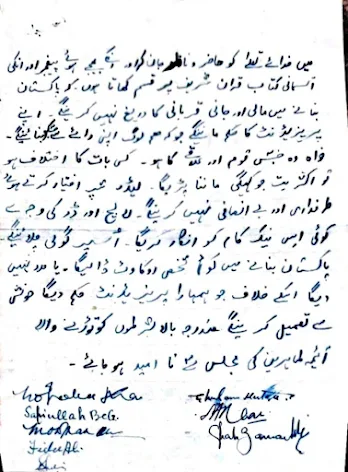 میں خدائے تعلےٰ کو حاضر و ناظر جان کر اور اسکے بھیجے ہوئے پیغمبر اور انکی
آسمانی کتاب قران شریف پر قسم کھاتا ہوں کہ پاکستان
بنانے میں مالی اور جانی قربانی کا دریغ نہیں کرینگے۔ اپنے
پریزیڈنٹ کا حکم مانینگے جو کہ ہم لوگ اپنی رائے سے
خواہ وہ جس قوم اور کا ہو۔ کسی بات کا اختلاف ہو
تو اکثریت جو کہیگی ماننا پڑیگا۔ لیڈر اختیار کرتے ہوئے
طرفداری اور بے انصافی نہیں کرینگے۔ لالچ اور ڈر کی وجہ سے
کوئی اس نیک کام کو انکار کریگا۔ گولی چلائینگے۔
پاکستان بنانے میں کوئی شخص رکاوٹ ڈالیگا۔ یا مدد نہیں
دیگا اسکے خلاف جو ہمارا پریزیڈنٹ حکم دیگا خوشی
سے تعمیل کرینگے مندرجہ بالا شرطوں کو توڑنے والا
آئمہ طاہرین کی مجلس سے نا امید ہو جائے۔
Safiullah Beg
Fida Ali